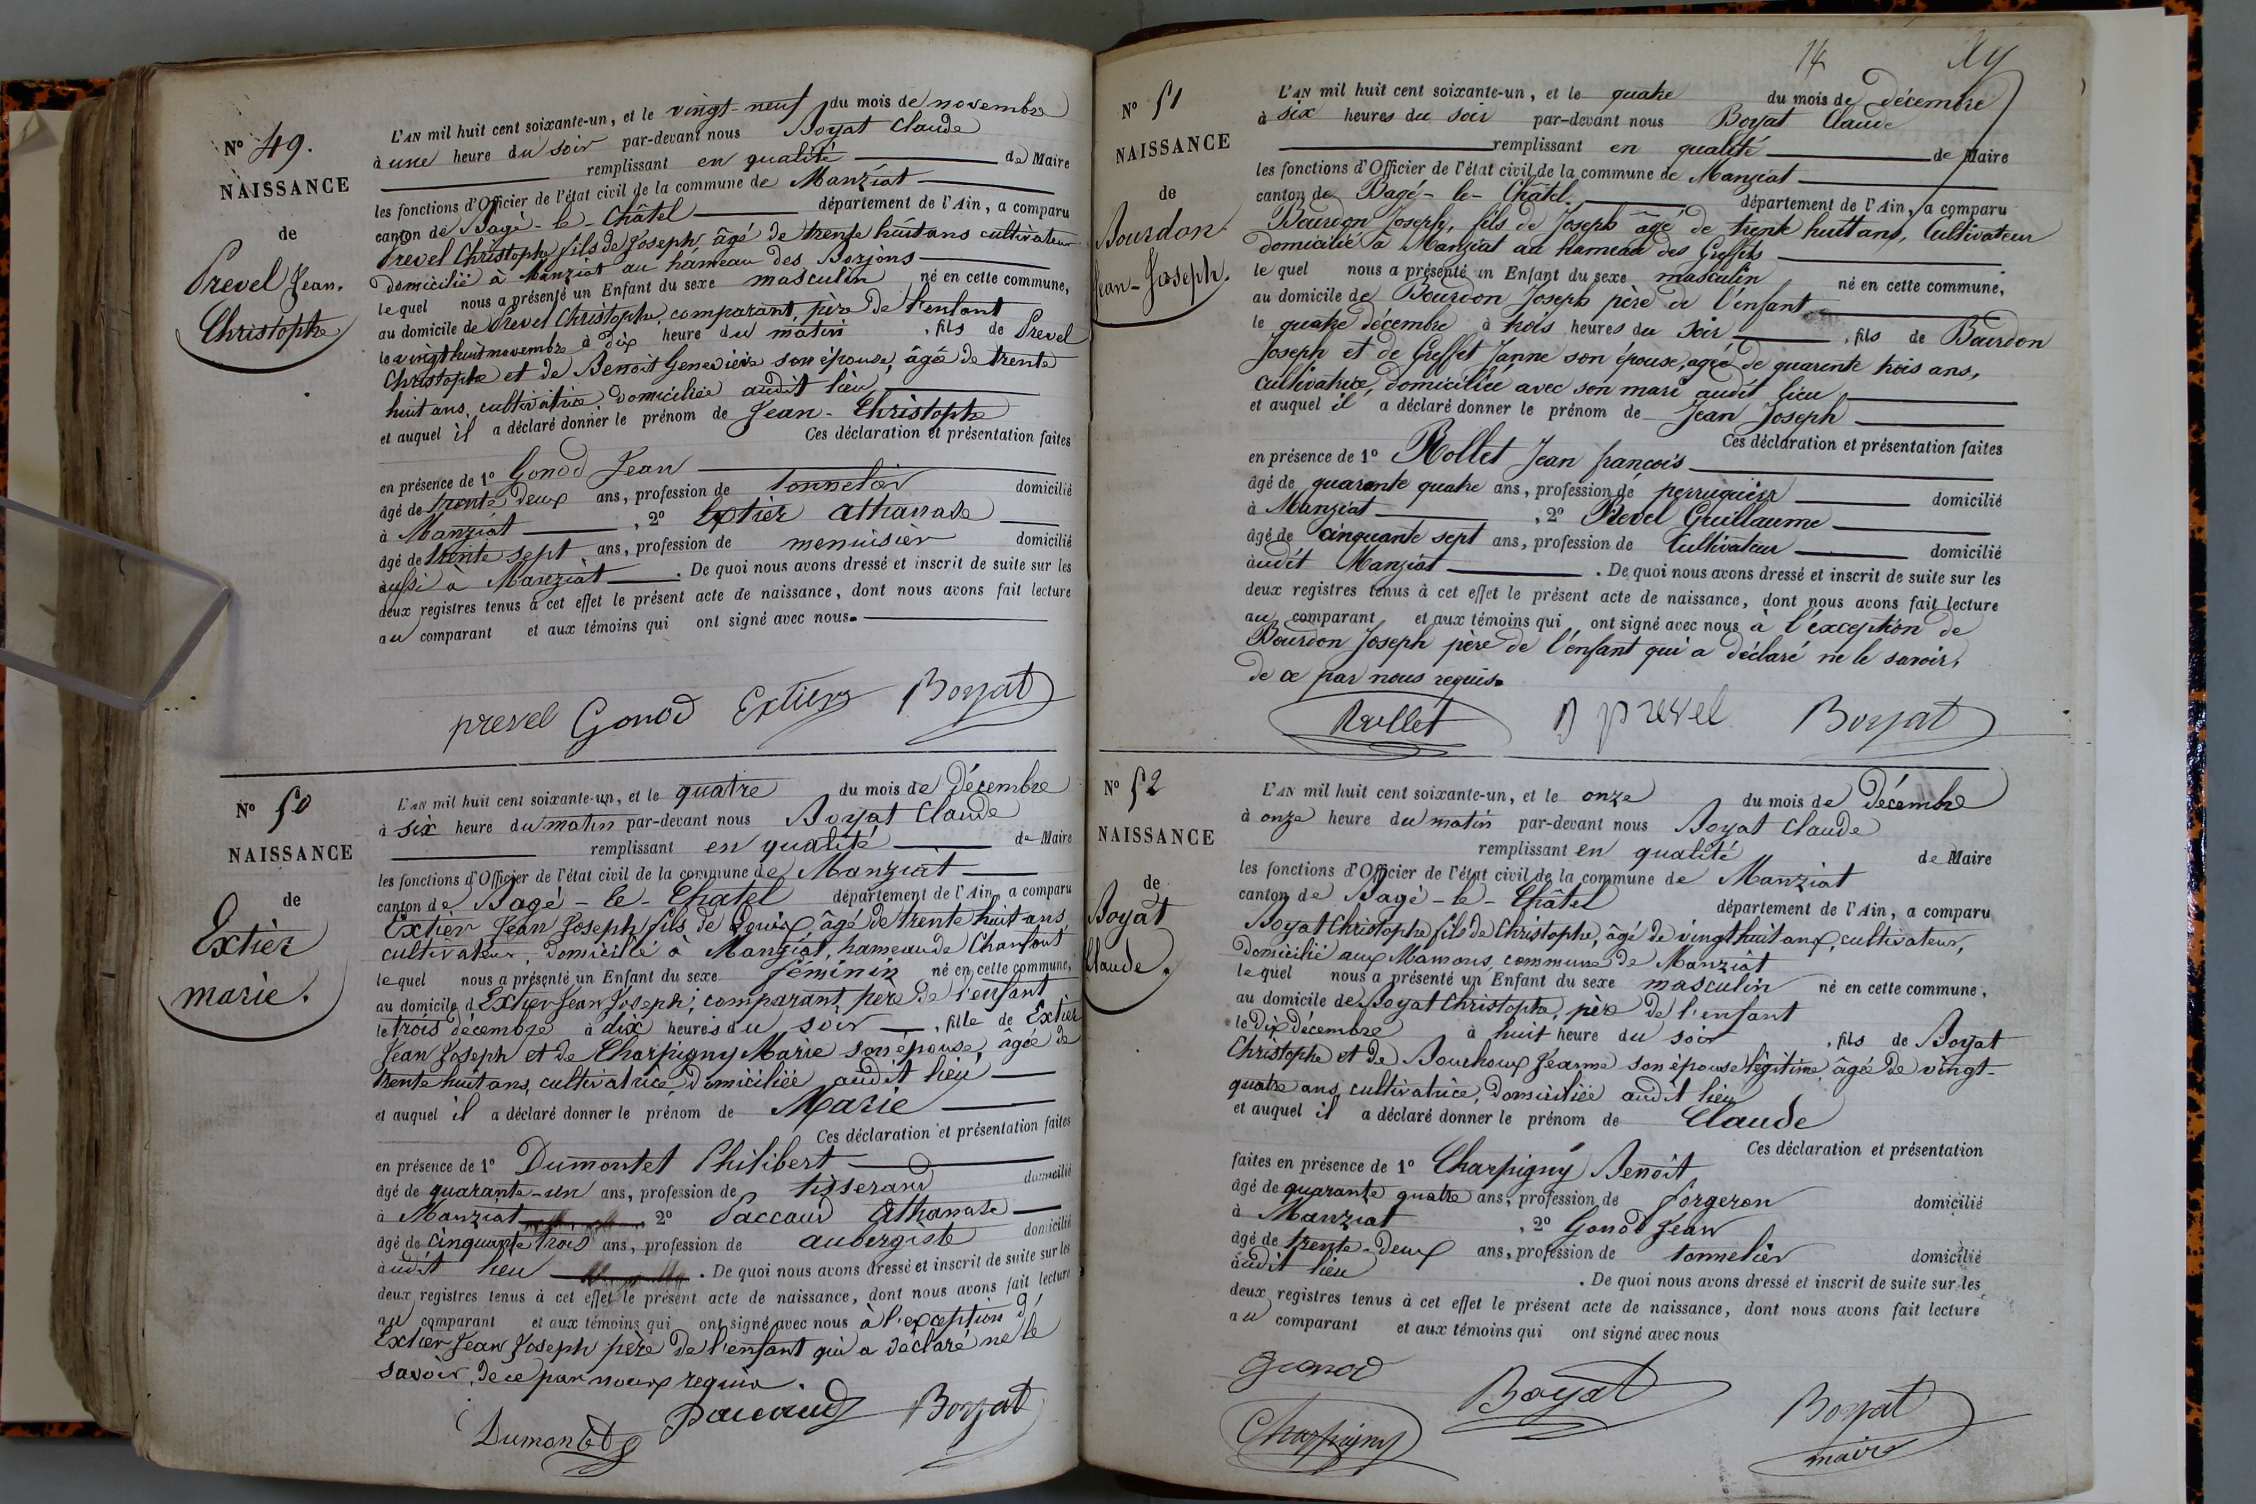 N° 49.
NAISSANCE
de
Prevel Jean.
Christophe
L'AN mil huit cent soixante-un, et le vingt-neuf du mois de novembre
à une heure du soir par-devant nous Boyat Claude
remplissant en qualité de Maire
les fonctions d'Officier de l'état civil de la commune de Manziat
canton de Bagé-le-Châtel département de l'Ain, a comparu
Prevel Christophe fils de Joseph, âgé de trente huit ans cultivateur
domicilié à Manziat au hameau des Borjons
le quel nous a présenté un Enfant du sexe masculin né en cette commune,
au domicile de Prevel Christophe, comparant, père de l'enfant
le vingt huit novembre à dix heure du matin , fils de Prevel
Christophe et de Benoit Geneviève son épouse, âgée de trente
huit ans, cultivatrice domiciliée audit lieu
et auquel il a déclaré donner le prénom de Jean-Christophe
Ces déclaration et présentation faites
en présence de 1° Gonod Jean
âgé de trente deux ans, profession de tonnelier domicilié
à Manziat , 2° Extier Athanase
âgé de trente sept ans, profession de menuisier domicilié
aussi à Manziat . De quoi nous avons dressé et inscrit de suite sur les
deux registres tenus à cet effet le présent acte de naissance, dont nous avons fait lecture
au comparant et aux témoins qui ont signé avec nous.
prevel Gonod Extier Boyat
N° 50
NAISSANCE
de
Extier
marie.
L'AN mil huit cent soixante-un, et le quatre du mois de Décembre
à six heure du matin par-devant nous Boyat Claude
remplissant en qualité de Maire
les fonctions d'Officier de l'état civil de la commune de Manziat
canton de Bagé-le-Chatel département de l'Ain, a comparu
Extier Jean Joseph fils de Denis, âgé de trente huit ans
cultivateur, domicilié à Manziat, hameau de Chanfont
le quel nous a présenté un Enfant du sexe féminin né en cette commune,
au domicile d'Extier Jean Joseph, comparant, père de l'enfant
le trois décembre à dix heures du soir , fille de Extier
Jean Joseph et de Charpigny Marie son épouse, âgée de
trente huit ans, cultivatrice domiciliée audit lieu
et auquel il a déclaré donner le prénom de Marie
Ces déclaration et présentation faites
en présence de 1° Dumontet Philibert
âgé de quarante-un ans, profession de tisserand domicilié
à Manziat 2° Paccaud Athanase
âgé de cinquante trois ans, profession de aubergiste domicilié
audit lieu . De quoi nous avons dressé et inscrit de suite sur les
deux registres tenus à cet effet le présent acte de naissance, dont nous avons fait lecture
au comparant et aux témoins qui ont signé avec nous à l'exception d'
Extier Jean Joseph père de l'enfant qui a déclaré ne le
savoir, de ce par nous requis.
Dumontet Paccaud Boyat
14
N° 51
NAISSANCE
de
Bourdon
Jean-Joseph.
L'AN mil huit cent soixante-un, et le quatre du mois de décembre
à six heures du soir par-devant nous Boyat Claude
remplissant en qualité de Maire
les fonctions d'Officier de l'état civil de la commune de Manziat
canton de Bagé-le-Châtel département de l'Ain, a comparu
Bourdon Joseph, fils de Joseph âgé de trente huit ans, Cultivateur
domicilié à Manziat au hameau des Greffets
le quel nous a présenté un Enfant du sexe masculin né en cette commune,
au domicile de Bourdon Joseph père de l'enfant
le quatre décembre à trois heures du soir , fils de Bourdon
Joseph et de Greffet Janne son épouse, agée de quarente trois ans,
cultivatrice, domiciliée avec son mari audit lieu
et auquel il a déclaré donner le prénom de Jean Joseph
Ces déclaration et présentation faites
en présence de 1° Rollet Jean françois
âgé de quarante quatre ans, profession de perruquier domicilié
à Manziat , 2° Prevel Guillaume
âgé de cinquante sept ans, profession de Cultivateur domicilié
audit Manziat . De quoi nous avons dressé et inscrit de suite sur les
deux registres tenus à cet effet le présent acte de naissance, dont nous avons fait lecture
au comparant et aux témoins qui ont signé avec nous à l'éxception de
Bourdon Joseph père de l'énfant qui a déclaré ne le savoir,
de ce par nous requis.
Rollet prevel Boyat
N° 52
NAISSANCE
de
Boyat
Claude.
L'AN mil huit cent soixante-un, et le onze du mois de Décembre
à onze heure du matin par-devant nous Boyat Claude
remplissant en qualité de Maire
les fonctions d'Officier de l'état civil de la commune de Manziat
canton de Bagé-le-Châtel département de l'Ain, a comparu
Boyat Christophe fils de Christophe, âgé de vingt huit ans, cultivateur,
domicilié aux Mamons, commune de Manziat
le quel nous a présenté un Enfant du sexe masculin né en cette commune,
au domicile de Boyat Christophe, père de l'enfant
le dix décembre à huit heure du soir , fils de Boyat
Christophe et de Bourhoux Jeanne son épouse légitime âgée de vingt-
quatre ans, cultivatrice, domiciliée audit lieu
et auquel il a déclaré donner le prénom de Claude
Ces déclaration et présentation
faites en présence de 1° Charpigny Benoit
âgé de quarante quatre ans, profession de forgeron domicilié
à Manziat , 2° Gonod Jean
âgé de trente-deux ans, profession de tonnelier domicilié
audit lieu . De quoi nous avons dressé et inscrit de suite sur les
deux registres tenus à cet effet le présent acte de naissance, dont nous avons fait lecture
au comparant et aux témoins qui ont signé avec nous
Gonod Boyat Boyat
Charpigny maire